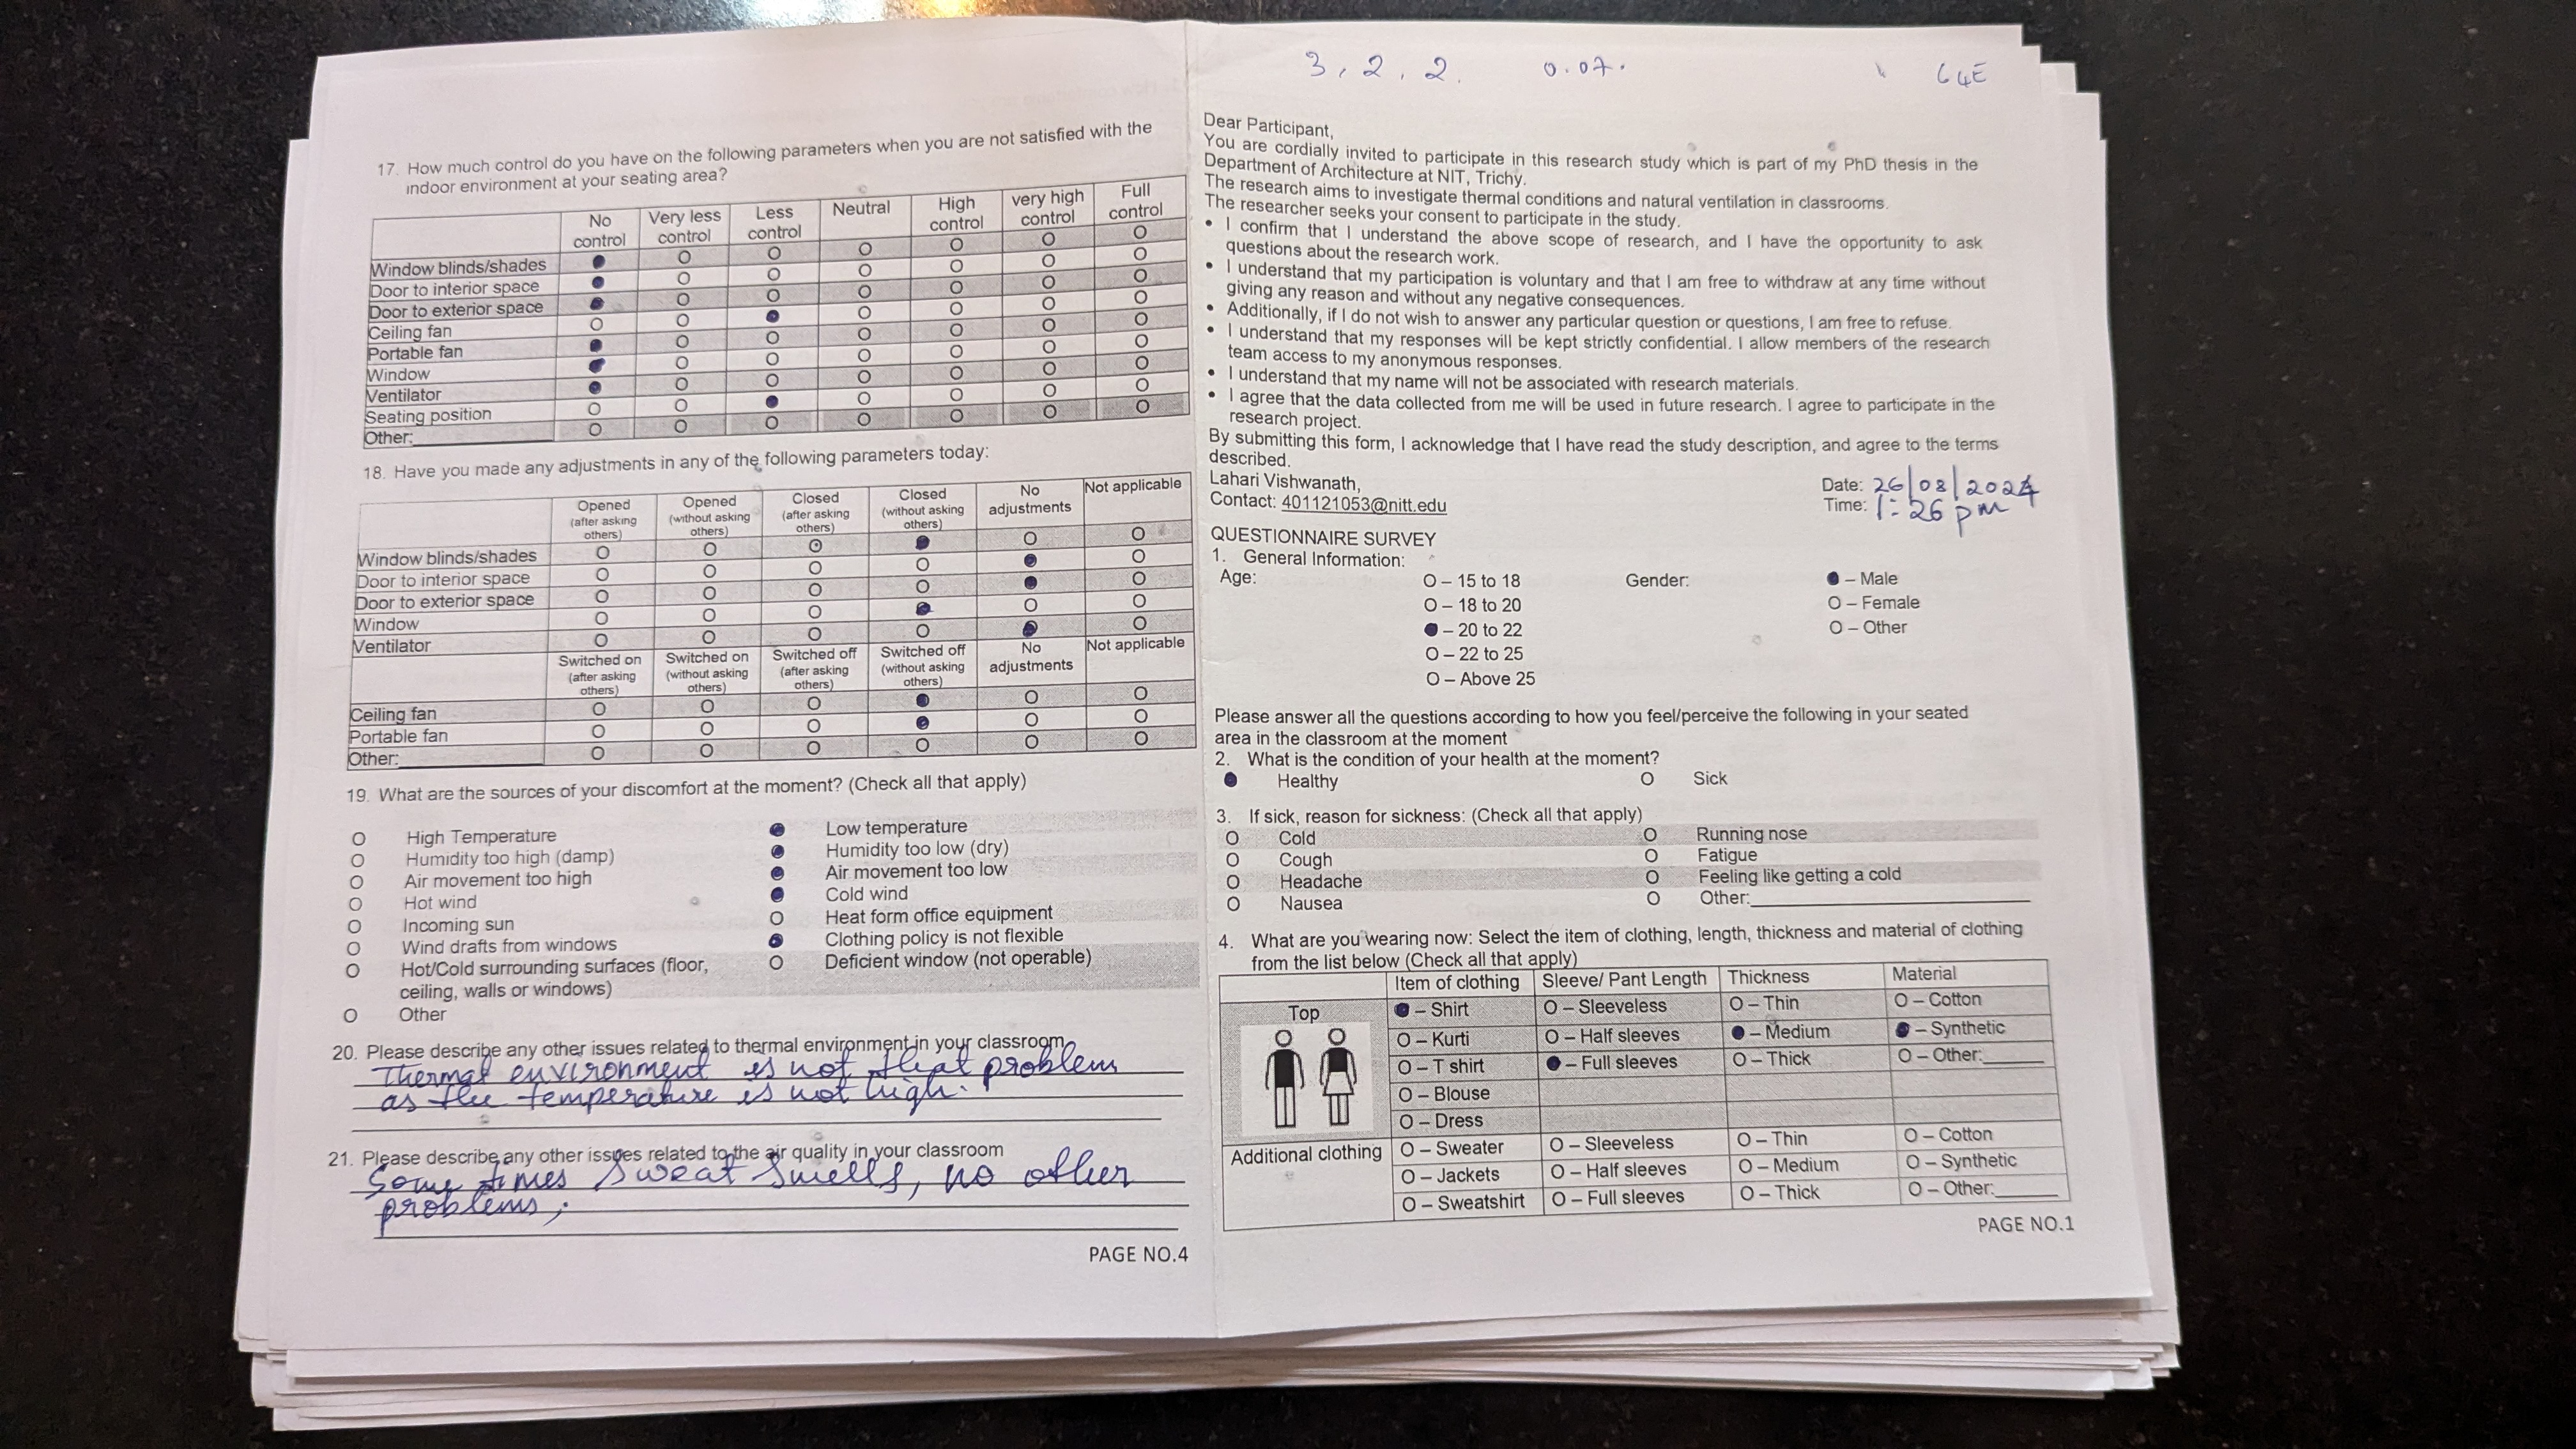 17. How much control do you have on the following parameters when you are not satisfied with the
indoor environment at your seating area?
No control Very less control Less control Neutral High control very high control Full control
Window blinds/shades ● O O O O O O
Door to interior space ● O O O O O O
Door to exterior space ● O O O O O O
Ceiling fan O O ● O O O O
Portable fan ● O O O O O O
Window ● O O O O O O
Ventilator ● O O O O O O
Seating position O O ● O O O O
Other:________ O O O O O O O
18. Have you made any adjustments in any of the following parameters today:
Opened (after asking others) Opened (without asking others) Closed (after asking others) Closed (without asking others) No adjustments Not applicable
Window blinds/shades O O O ● O O
Door to interior space O O O O ● O
Door to exterior space O O O O ● O
Window O O O ● O O
Ventilator O O O O ● O
Switched on (after asking others) Switched on (without asking others) Switched off (after asking others) Switched off (without asking others) No adjustments Not applicable
Ceiling fan O O O ● O O
Portable fan O O O ● O O
Other:________ O O O O O O
19. What are the sources of your discomfort at the moment? (Check all that apply)
O High Temperature ● Low temperature
O Humidity too high (damp) ● Humidity too low (dry)
O Air movement too high ● Air movement too low
O Hot wind ● Cold wind
O Incoming sun O Heat form office equipment
O Wind drafts from windows ● Clothing policy is not flexible
O Hot/Cold surrounding surfaces (floor, O Deficient window (not operable)
ceiling, walls or windows)
O Other
20. Please describe any other issues related to thermal environment in your classroom
Thermal environment is not that problem
as the temperature is not high.
21. Please describe any other issues related to the air quality in your classroom
Some times Sweat Smells, no other
problems,.
PAGE NO.4
3, 2, 2. 0.07. G4E
Dear Participant,
You are cordially invited to participate in this research study which is part of my PhD thesis in the
Department of Architecture at NIT, Trichy.
The research aims to investigate thermal conditions and natural ventilation in classrooms.
The researcher seeks your consent to participate in the study.
• I confirm that I understand the above scope of research, and I have the opportunity to ask
questions about the research work.
• I understand that my participation is voluntary and that I am free to withdraw at any time without
giving any reason and without any negative consequences.
• Additionally, if I do not wish to answer any particular question or questions, I am free to refuse.
• I understand that my responses will be kept strictly confidential. I allow members of the research
team access to my anonymous responses.
• I understand that my name will not be associated with research materials.
• I agree that the data collected from me will be used in future research. I agree to participate in the
research project.
By submitting this form, I acknowledge that I have read the study description, and agree to the terms
described.
Lahari Vishwanath,
Contact: 401121053@nitt.edu
Date: 26/08/2024
Time: 1:26 pm
QUESTIONNAIRE SURVEY
1. General Information:
Age: O – 15 to 18 Gender: ● – Male
O – 18 to 20 O – Female
● – 20 to 22 O – Other
O – 22 to 25
O – Above 25
Please answer all the questions according to how you feel/perceive the following in your seated
area in the classroom at the moment
2. What is the condition of your health at the moment?
● Healthy O Sick
3. If sick, reason for sickness: (Check all that apply)
O Cold O Running nose
O Cough O Fatigue
O Headache O Feeling like getting a cold
O Nausea O Other:________
4. What are you wearing now: Select the item of clothing, length, thickness and material of clothing
from the list below (Check all that apply)
Item of clothing Sleeve/ Pant Length Thickness Material
Top ● – Shirt O – Sleeveless O – Thin O – Cotton
O – Kurti O – Half sleeves ● – Medium ● – Synthetic
O – T shirt ● – Full sleeves O – Thick O – Other:______
O – Blouse
O – Dress
Additional clothing O – Sweater O – Sleeveless O – Thin O – Cotton
O – Jackets O – Half sleeves O – Medium O – Synthetic
O – Sweatshirt O – Full sleeves O – Thick O – Other:______
PAGE NO.1